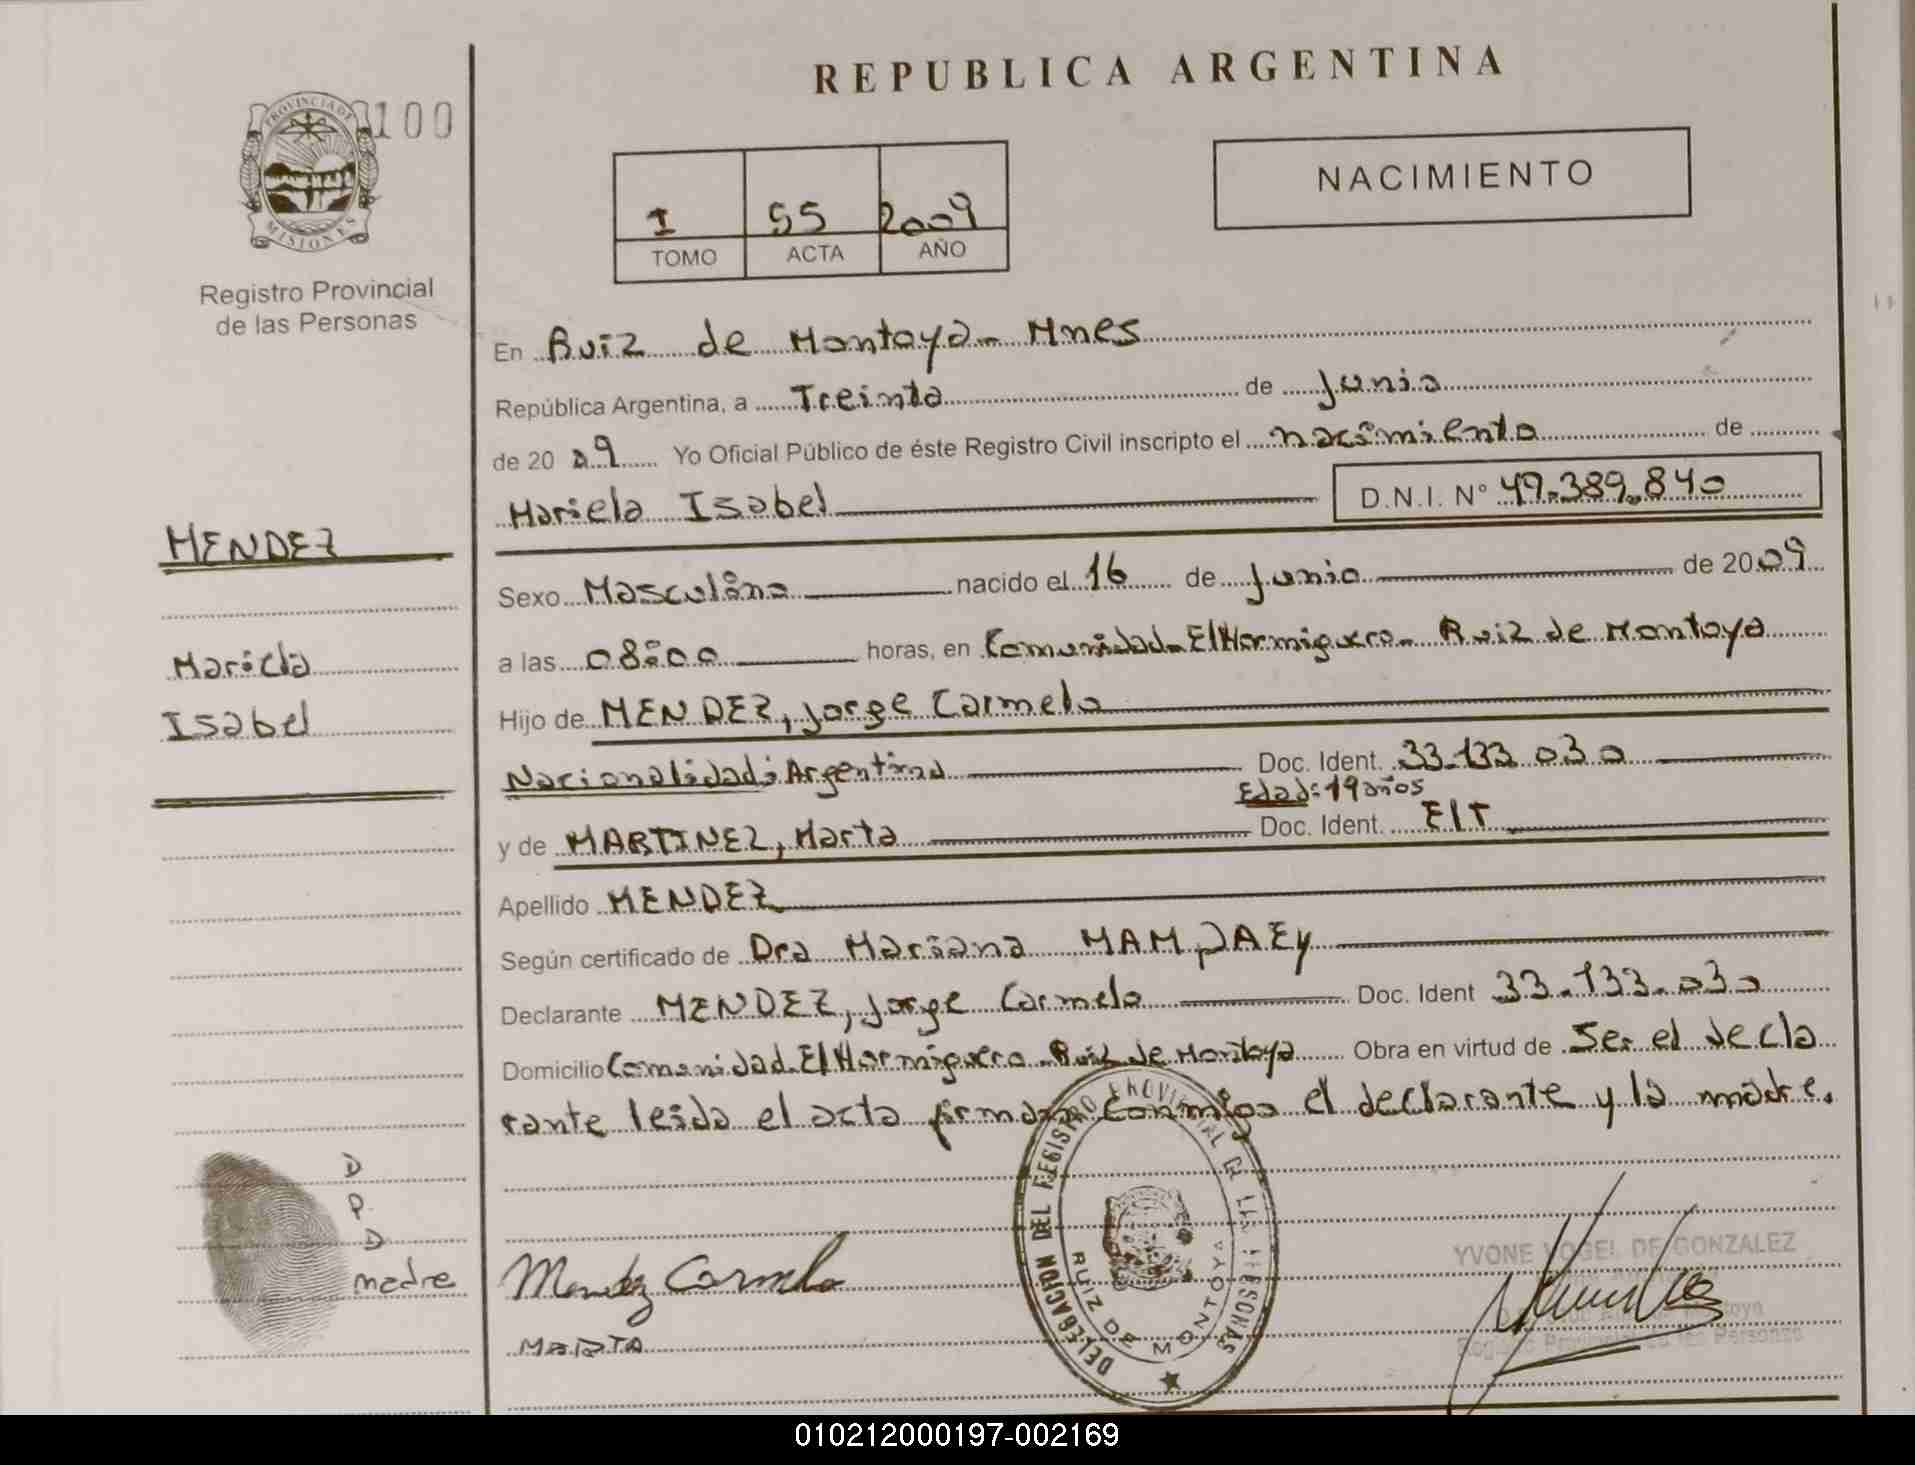 REPUBLICA ARGENTINA
PROVINCIA DE
MISIONES
100
Registro Provincial
de las Personas
I 55 2009
TOMO ACTA AÑO
NACIMIENTO
En Ruiz de Montoya - Mnes
República Argentina, a Treinta de Junio
de 2009 Yo Oficial Público de éste Registro Civil inscripto el nacimiento de
Mariela Isabel D.N.I. Nº 49.389.840
MENDEZ
Mariela
Isabel
Sexo Masculino nacido el 16 de Junio de 2009
a las 08:00 horas, en Comunidad El Hormiguero - Ruiz de Montoya
Hijo de MENDEZ, Jorge Carmelo
Nacionalidad: Argentina Doc. Ident. 33.133.030
Edad: 19 años
y de MARTINEZ, Marta Doc. Ident. EIT
Apellido MENDEZ
Según certificado de Dra Mariana
Declarante MENDEZ, Jorge Carmelo Doc. Ident 33.133.030
Domicilio Comunidad El Hormiguero - Ruiz de Montoya Obra en virtud de Ser el decla
rante leida el acta firman conmigo el declarante y la madre.
D
P.
D
madre
Mendez Carmelo
MARTA
DELEGACION DEL REGISTRO PROVINCIAL DE LAS PERSONAS
RUIZ DE MONTOYA
YVONE VOGEL DE GONZALEZ
Registro Provincial de las Personas
010212000197-002169